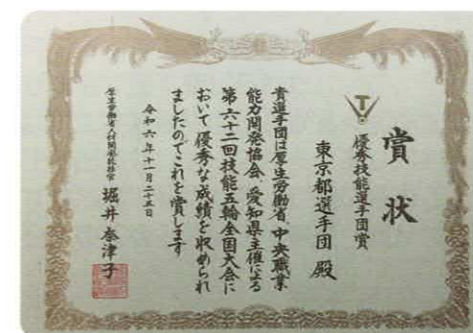 賞状
優秀技能選手団賞
東京都選手団 殿
貴選手団は厚生労働省、中央職業
能力開発協会、愛知県主催による
第六十二回技能五輪全国大会に
おいて優秀な成績を収められ
ましたのでこれを賞します
令和六年十一月二十五日
厚生労働省人材開発統括官 堀井 奈津子